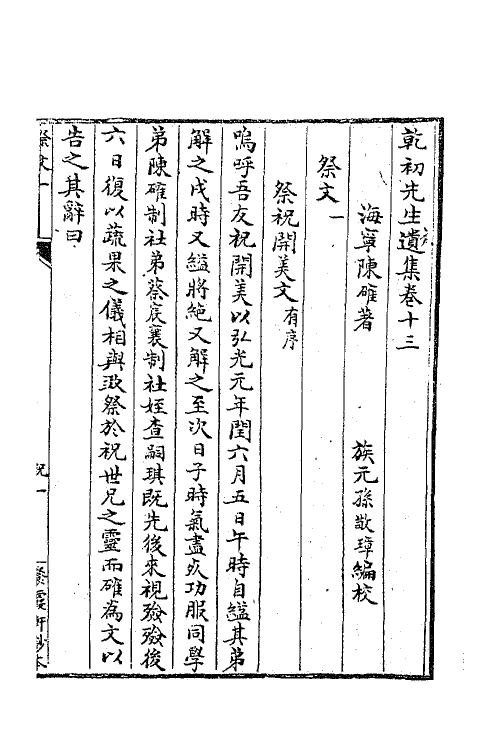 乾初先生遺集卷十三
海寧陳確著　族元孫敬璋編校
祭文一
祭祝開美文有序
嗚呼吾友祝開美以弘光元年閏六月五日午時自縊其弟
解之戌時又縊將絕又解之至次日子時氣盡友功服同學
弟陳確制社弟蔡庡襄制社姪查嗣琪既先後來視殮殮後
六日復以蔬果之儀相與致祭於祝世兄之靈而確為文以
告之其辭曰
祭文一
祝一
餐霞軒鈔本